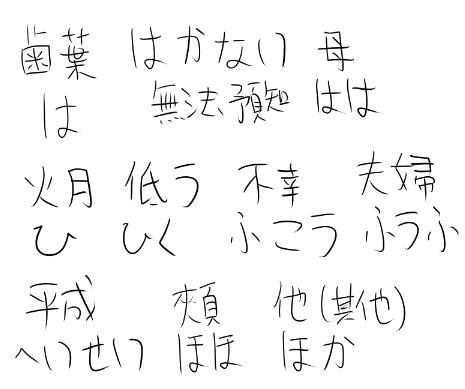 歯葉 はかない 母
は 無法予知 はは
火月 低う 不幸 夫婦
ひ ひく ふこう ふうふ
平成 頬 他(其他)
へいせい ほほ ほか